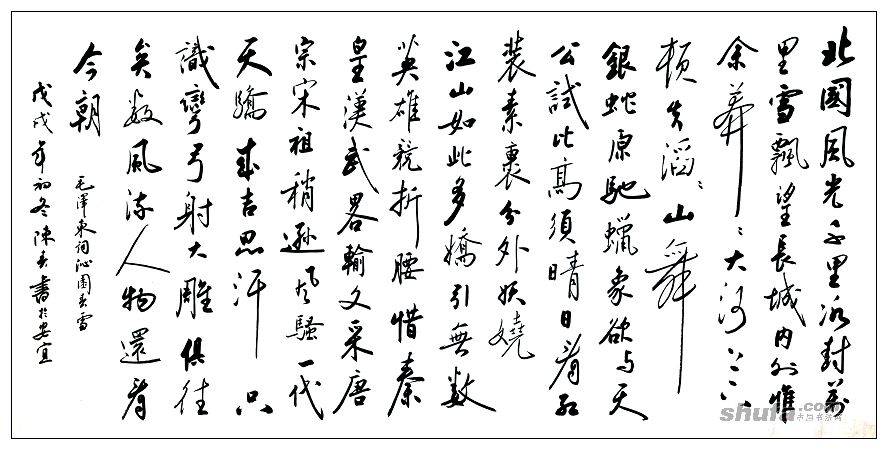 北國風光千里冰封萬
里雪飄望長城内外惟
余莽〻大河上下
頓失滔〻山舞
銀蛇原馳蠟象欲与天
公試比高須晴日看紅
裝素裹分外妖嬈
江山如此多嬌引無数
英雄競折腰惜秦
皇漢武畧輸文采唐
宗宋祖稍遜風騷一代
天驕成吉思汗只
識彎弓射大雕俱往
矣数風流人物還看
今朝
毛澤東詞沁園春雪
戊戌年初冬陳春書於安宜
shufa.com